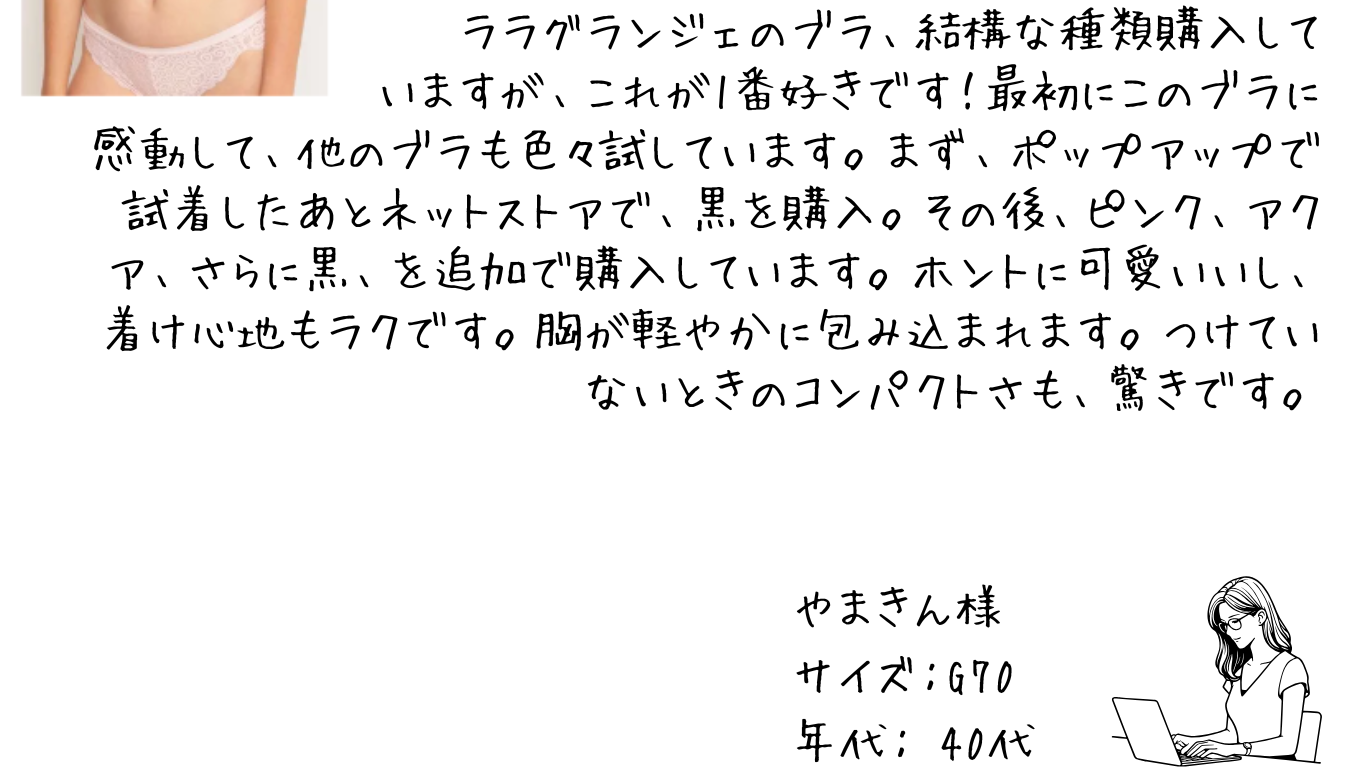 ララグランジェのブラ、結構な種類購入して
いますが、これが1番好きです！最初にこのブラに
感動して、他のブラも色々試しています。まず、ポップアップで
試着したあとネットストアで、黒を購入。その後、ピンク、アク
ア、さらに黒、を追加で購入しています。ホントに可愛いいし、
着け心地もラクです。胸が軽やかに包み込まれます。つけてい
ないときのコンパクトさも、驚きです。
やまきん様
サイズ；G70
年代； 40代